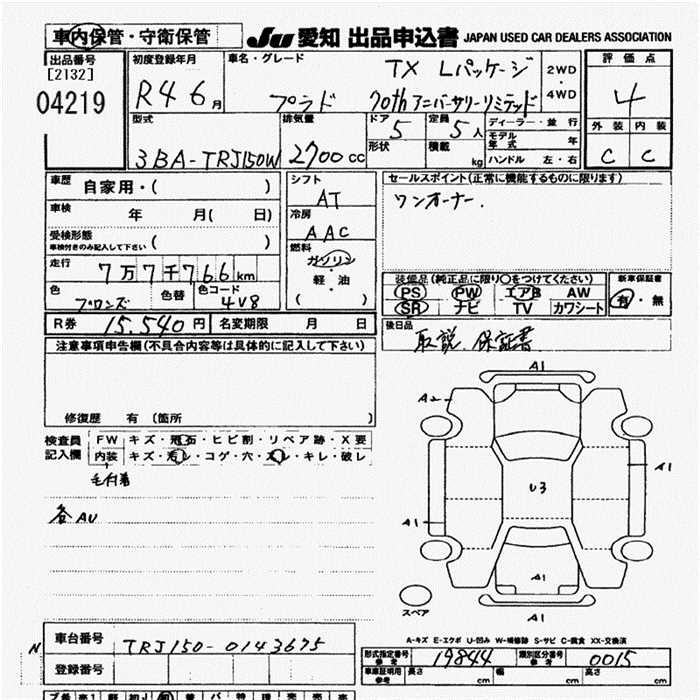 車内保管・守衛保管 JU 愛知 出品申込書 JAPAN USED CAR DEALERS ASSOCIATION
出品番号 [2132] 04219
初度登録年月 R4 6月
車名・グレード プラド TX Lパッケージ 70thアニバーサリーリミテッド
2WD・4WD
評価点 4
外装 C 内装 C
型式 3BA-TRJ150W
排気量 2700cc
ドア 5 形状
定員 5人 積載 kg
ディーラー・並行
モデル年式 年
ハンドル 左・右
車歴 自家用・( )
車検 年 月( 日)
受検形態 車検付きのみ記入して下さい ( )
走行 7万7千766km
色 ブロンズ 色替 色コード 4V8
シフト AT
冷房 AAC
燃料 ガソリン・軽・油 ( )
セールスポイント(正常に機能するものに限ります)
ワンオーナー.
装備品(純正品に限り○をつけてください) 新車保証書
PS PW エアB AW 有・無
SR ナビ TV カワシート
R券 15,540円 名変期限 月 日
後日品 取説、保証書
注意事項申告欄(不具合内容等は具体的に記入して下さい)
修復歴 有 (箇所 )
検査員記入欄
FW キズ・飛石・ヒビ割・リペア跡・X要
内装 キズ・汚レ・コゲ・穴・スレ・キレ・破レ
毛付着
各AU
A1
A2
A1
U3
A1
A1
A1
スペア
A-キズ E-エクボ U-凹み W-補修跡 S-サビ C-腐食 XX-交換済
N 車台番号 TRJ150-0143675
登録番号
型式指定番号 参考 19844 類別区分番号 参考 0015
車庫証明用 参考 長さ cm 幅 cm 高さ cm